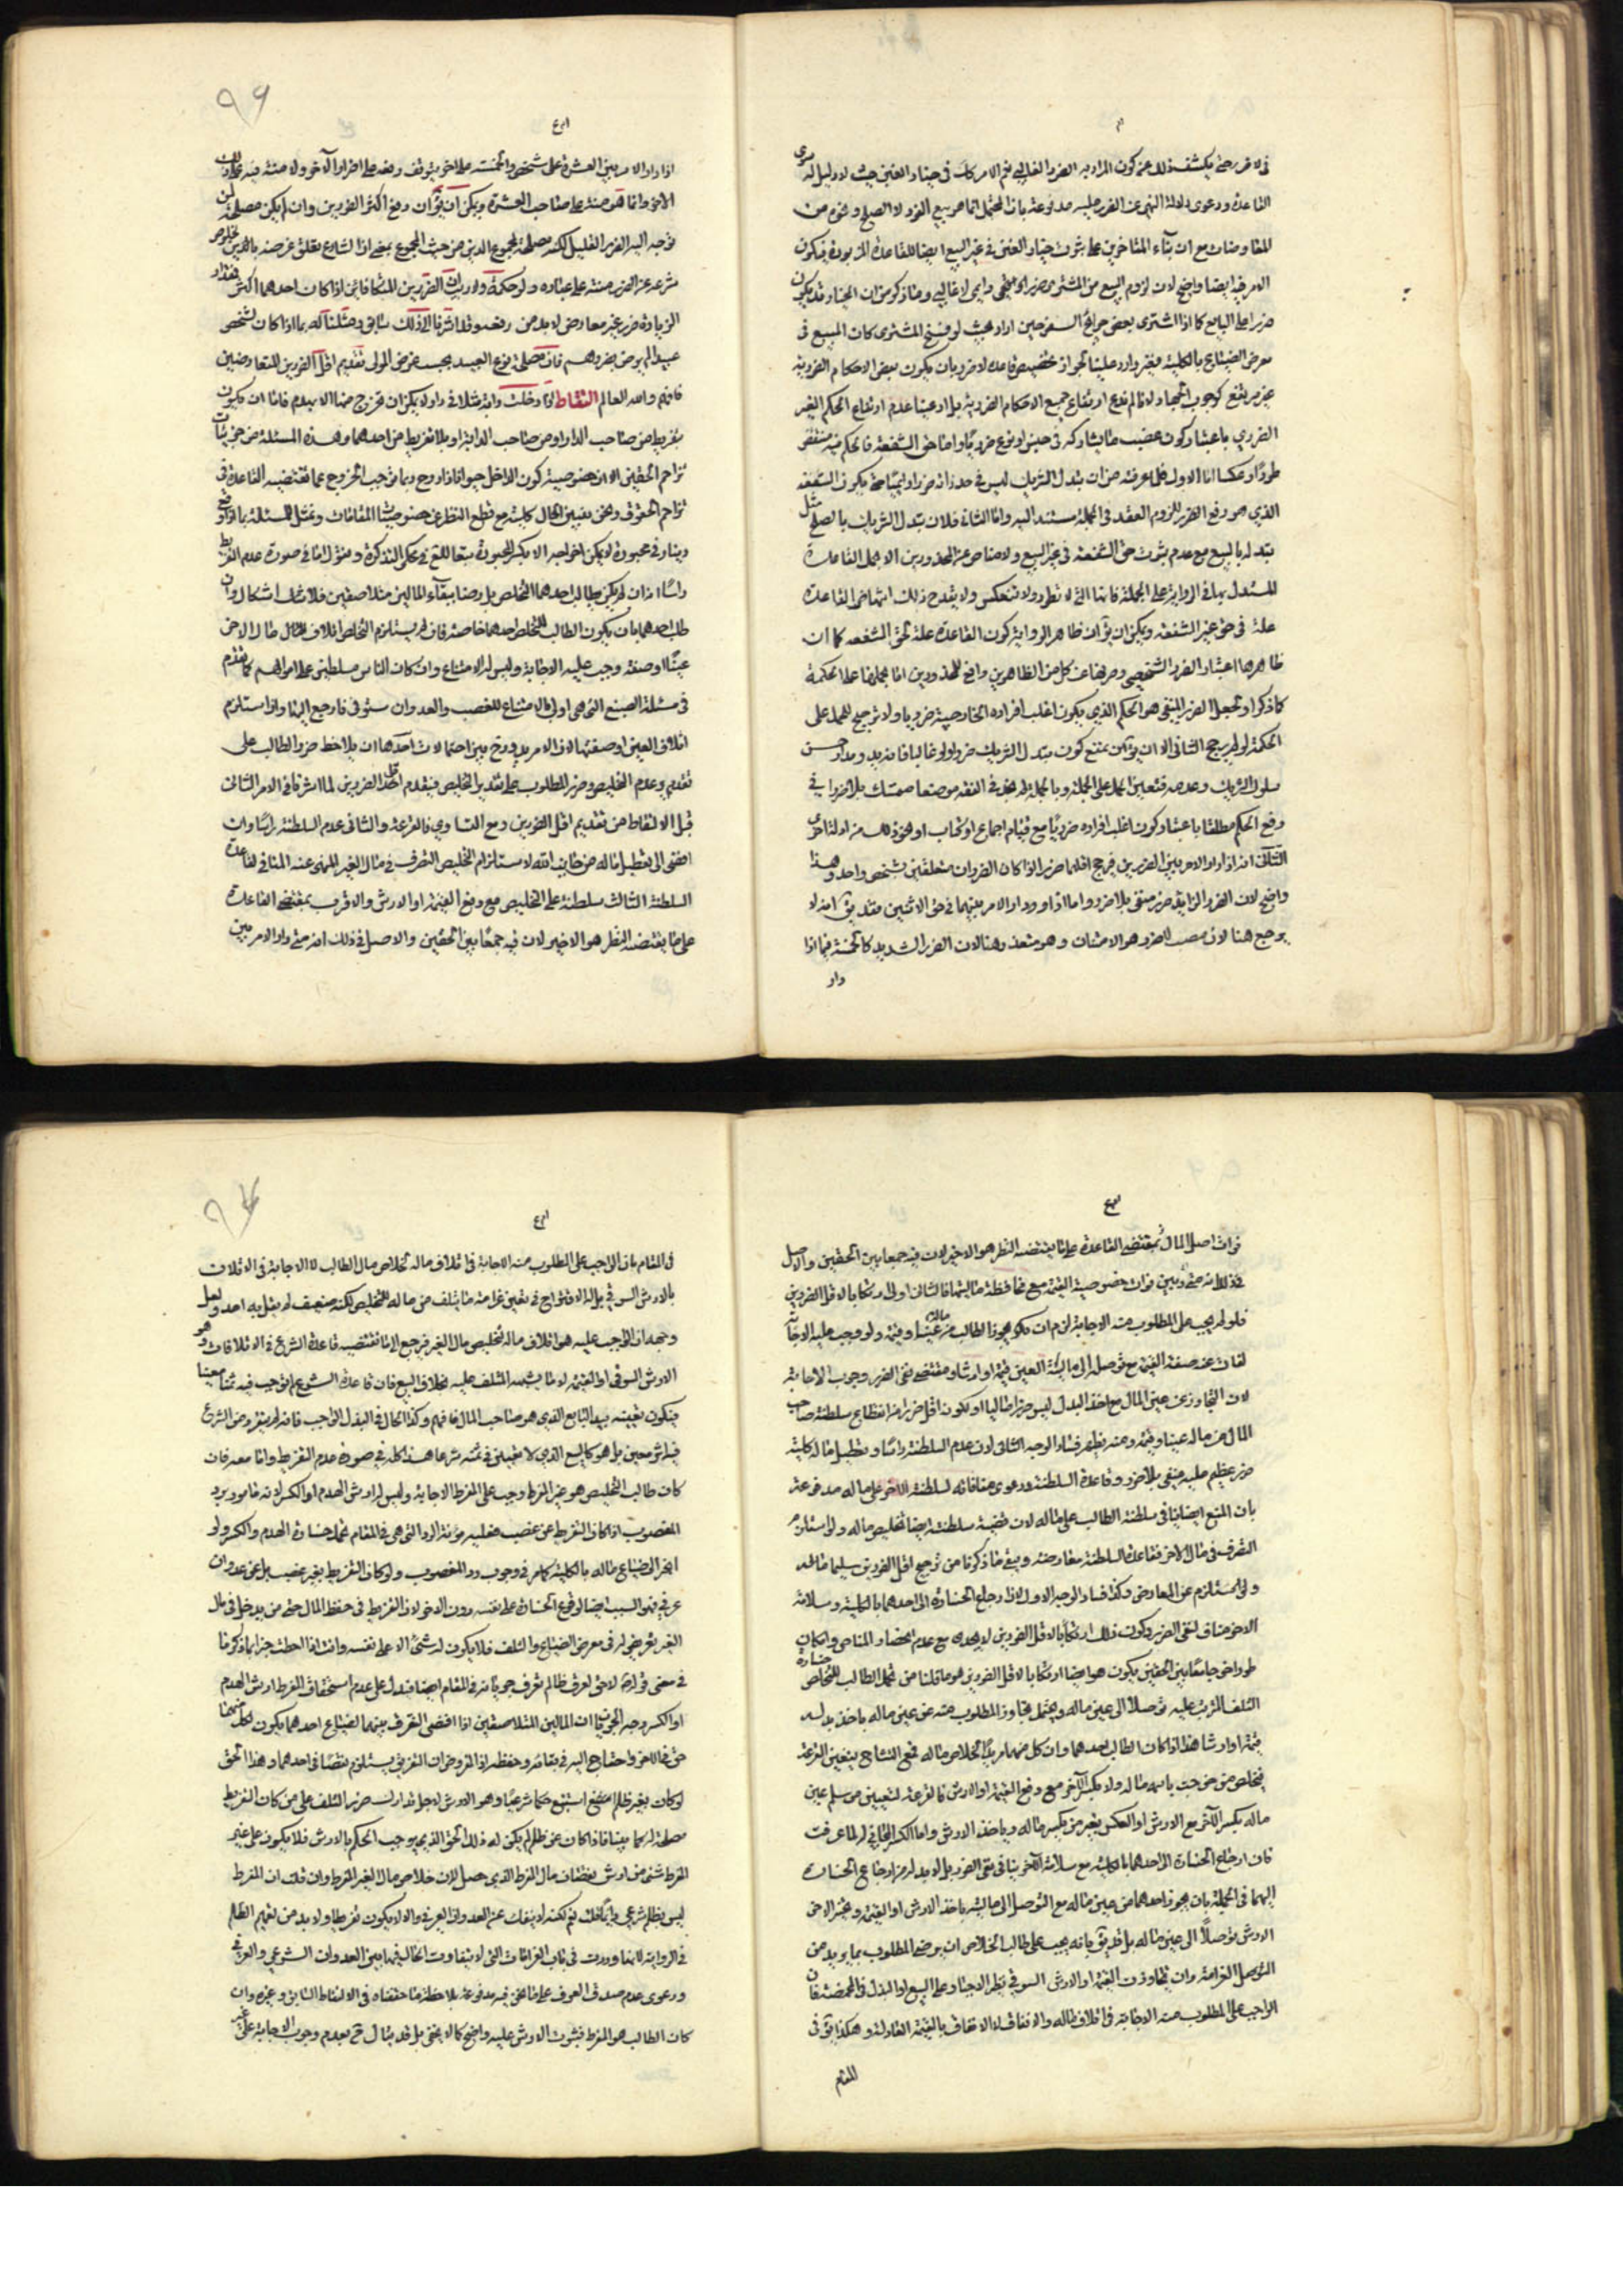 في لا ضرر حتى يكشف ذلك عن كون المراد به الضرر الغالبي نعم الامر كك في خيار الغبن حيث لا دليل له سوى
القاعدة ودعوى دلالة النهي عن الغرر عليه مدفوعة بان المحتمل انما هو بيع الغرر لا الصلح ونحوه من
المعاوضات مع ان بناء المتاخرين على ثبوت خيار الغبن في غير البيع ايضا للقاعدة المزبورة فيكون
الامر فيه ايضا واضح لان لزوم البيع من المشتري ضرر لا غالبي وما ذكر من ان الخيار قد يكون
ضررا على البايع كما اذا اشترى بعض حوائج السفر حين اراد بحيث لو فسخ المشتري كان المبيع في
معرض الضياع بالكلية فغير وارد علينا لجواز تخصيص قاعدة لا ضرر بان يكون بعض الاحكام الضررية
غير مرتفع كوجوب الجهاد لانا لم ندع ارتفاع جميع الاحكام الضررية بل ادعينا عدم ارتفاع الحكم الغير
الضرري باعتبار كون ما يشاركه في جنس او نوع ضرريا واما حق الشفعة فالحكم فيه منتقض
طردا وعكسا اما الاول فلما عرفت من ان تبدل الشريك ليس في حد ذاته ضررا دائميا حتى يكون الشفعة
الذي هو رفع الضرر للزوم العقد في الجملة مستند اليه واما الثاني فلان تبدل الشريك بالصلح مثل
تبدله بالبيع مع عدم ثبوت حق الشفعة في غير البيع ولا مناص عن المحذورين الا بحمل القاعدة
المستدل بها في الرواية على الجملة فانها التي لا تطرد ولا تنعكس ولا يقدح ذلك انتهاض القاعدة
علة في حق غير الشفعة ويمكن ان يق ان ظاهر الرواية كون القاعدة علة لحق الشفعه كما ان
ظاهرها اعتبار الضرر الشخصي وصرفها عن كل من الظاهرين رافع للمحذورين اما بحملها على الحكمة
كما ذكر او بجعل الضرر المنفي هو الحكم الذي يكون اغلب افراده الخارجية ضرريا ولا ترجيح للحمل على
الحكمة لو لم يرجح الثاني الا ان يق من يمنع كون تبدل الشريك ضررا ولو غالبا فانه يدور مدار حسن
سلوك الشريك وعدمه فتعين الحمل على الجملة وبالجملة لم نجد في الفقه موضعا صمتسك بلا ضرر في
رفع الحكم مطلقا باعتبار كون اغلب افراده ضرريا مع قيام اجماع او كتاب او نحو ذلك من ادلة اخرى
الثالث انه اذا دار الامر بين الضررين فيرجح اقلهما ضررا اذا كان الضرران متعلقين بشخص واحد وهذا
واضح لان الضرر الزايد ضرر منفي بلا ضرر واما اذا دار الامر بينهما في حق الاثنين فقد يق انه لا
يرجح هنا لان مصب لا ضرر هو الامتنان وهو متعذر هنا لان الضرر الشديد كالخمسة فيما اذا
دار
٩٦
اذا دار الامر بين العشرة على شخص والخمسة على اخر يتوقف رفعه على اضرار الآخر ولا منة فيه على ذلك
الاخر وانما هو منة على صاحب العشرة ويمكن ان يق ان رفع اكثر الضررين وان لم يكن مصلحة لمن
توجه اليه الضرر القليل لكنه مصلحة لمجموع الدين من حيث المجموع بمعنى اذا الشارع تعلق غرضه بالدين بخلوص
شرعه عن الضرر منة على عباده ولو حكمة ولا ريب ان الضررين المتكافئين اذا كان احدهما اكثر فمقدار
الزيادة ضرر غير معارض لا بد من رفعه وقد اشرنا الى ذلك سابقا ومثلنا له بما اذا كان لشخص
عبيد لم يرض بضررهم فان مصلحة نوع العبيد بحسب غرض المولى تقديم اقل الضررين المتعارضين
فافهم والله العالم التقاط لو دخلت دابة مثلا في دار لا يمكن ان تخرج منها الا بهدم فاما ان يكون
بتفريط من صاحب الدار او من صاحب الدابة او بلا تفريط من احدهما وهذه المسئلة من جزئيات
تزاحم الحقين الا ان خصوصية كون الداخل حيوانا ذا روح ربما توجب الخروج عما تقتضيه القاعدة في
تزاحم الحقوق ونحن نبين الحال كلية مع قطع النظر عن خصوصيات المقامات ونمثل للمسئلة بما لو وقع
دينار في محبرة لا يمكن اخراجه الا بكسر المحبرة تبعا للعلامة في محكي التذكرة ونقول اما في صورة عدم التفريط
راسا اما ان لم يكن يطالب احدهما التخلص بل رضيا ببقاء المالين متلاصقين فلا شك اشكال وان
طلب احدهما بان يكون الطالب للتخلص احدهما خاصة فان لم يستلزم التخلص اتلاف المال مال الاخر
عينا او صفة وجب عليه الاجابة وليس له الامتناع وان كان الناس مسلطين على اموالهم كما تقدم
في مسئلة الصبغ التي هي اولى بالامتناع للغصب والعدوان ستوفى فارجع اليها واذا استلزم
اتلاف العين او صفتها لاف الامر يدور ح بين احتمالات احدها ان يلاحظ ضرر الطالب على
تقديم وعدم التخليص وضرر المطلوب على تقدير التخليص فيقدم اقل الضررين لما اشرنا في الامر الثالث
قبل الالتقاط من تقديم اقل الضررين ومع التساوي فالقرعة والثاني عدم السلطنة راسا وان
افضى الى تعطيل ماله من جانب الله لاستلزام التخليص التصرف في مال الغير المنهي عنه المنافي لقاعدة
السلطنة الثالث سلطنة على التخليص مع دفع القيمة او الارش والاقرب بمقتضى القاعدة
على ما يقتضيه النظر هو الاخير لان فيه جمعا بين الحقين والاصل في ذلك انه متى دار الامر بين
فوات اصل المال بمقتضى القاعدة على ما يقتضيه النظر هو الاخير لان فيه جمعا بين الحقين والاصل
في ذلك انه متى بين فوات خصوصية القيمة مع محافظة ماليتها فالثاني اولى ارتكابا لاقل الضررين
فلو لم يجب على المطلوب منه الاجابة لزم ان يكون محروما الطالب من ماله عينا وقيمة ولو وجب عليه الاجابة
لفات عنه صفة القيمة مع توصله الى مالية العين قيمة او ارشا ومقتضى نفي الضرر وجوب الاجابة
لان التجاوز عن عين المال مع اخذ البدل ليس ضررا ماليا او يكون اقل ضررا من انقطاع سلطنة صاحب
المال عن ماله عينا وقيمة ومنه يظهر فساد الوجه الثاني لان عدم السلطنة راسا وتعطيل ماله كلية
ضرر عظيم عليه منفي بلا ضرر وقاعدة السلطنة ودعوى منافاته لسلطنة الآخر على ماله مدفوعة
بان المنع ايضا ينافي سلطنة الطالب على ماله لان قضية سلطنته ايضا تخليص ماله ولو استلزم
التصرف في مال الاخر فقاعدة السلطنة متعارضة ويبقى ما ذكرنا من ترجيح اقل الضررين سليما
ولى مستلزم عن المعارض وكذا فساد الوجه الاول لان ارجاع الخسارة الى احدهما بالكلية وسلامة
الاخر مناف لنفي الضرر وكون ذلك ارتكابا لاقل الضررين لا يجدي مع عدم انحصار المناص وامكان
طور اخر جامعا بين الحقين يكون هو ايضا ارتكابا لاقل الضررين هو ما قلنا من تحمل الطالب للتخلص خسارة
التلف المترتب عليه توصلا الى عين ماله ويحتمل تجاوز المطلوب منه عن عين ماله باخذ بدله
قيمة او ارشا هذا اذا كان الطالب احدهما وان كان كل منهما مريدا لخلاص ماله فمع التشاح يتعين القرعة
فيخلص من خرجت باسمه ماله ولا يكسر الآخر مع دفع القيمة او الارش فالقرعة لتعيين من سلم عين
ماله بكسر الآخر مع الارش او العكس بغير من يكسر ماله وياخذ الارش واما الكسر المجاني فلما عرفت
فان ارجاع الخسارة الى احدهما بالكلية مع سلامة الآخر ينافي نفي الضرر بل لا بد له من ارجاع الخسارة
اليهما في الجملة بان يحرم احدهما من عين ماله مع التوصل الى ماليته باخذ الارش او القيمة ويخسر الاخر
الارش توصلا الى عين ماله بل قد يق بانه يجب على طالب الخلاص ان يرضي المطلوب بما يريد من
التوصل الغرامة وان تجاوزت القيمة او الارش السوقي نظرا لاجباره على البيع او البذل في المخمصة فان
الواجب على المطلوب منه الاجابة في اتلاف ماله والانفاق لا الاتفاق بالقيمة العادلة وهكذا يق في
المقام
٩٧
في المقام بان الواجب على المطلوب منه الاجابة في اتلاف ماله لخلاص مال الطالب لا الاجابة في الاتلاف
بالارش السوقي بل له الاقتراح في تعيين غرامة ما يتلف من ماله للتخليص لكنه ضعيف لم يقل به احد ولعل
وجهه ان الواجب عليه هو اتلاف ماله لتخليص مال الغير فيرجع الى ما تقتضيه قاعدة الشرع في الاتلافات وهو
الارش السوقي او القيمة لا ما يشترط المتلف عليه بخلاف البيع فان قاعدة الشرع لم توجب فيه ثمنا معينا
فيكون تعيينه بيد البايع الذي هو صاحب المال فافهم وكذا الحال في البذل الواجب فانه لم يتقرر من الشرع
فيه اثر معين بل هو كالبيع الذي لا تعيين في ثمنه شرعا هذا كله في صورة عدم التفريط واما معه فان
كان طالب التخليص هو غير المفرط وجب على المفرط الاجابة وليس له ارش الهدم او الكسر لانه مامور برد
المغصوب اذا كان التفريط عن غصب فعليه مؤنة الرد التي هي في المقام تحمل خسارة الهدم والكسر ولو
انجر الى ضياع ماله بالكلية كما مر في وجوب رد المغصوب ولو كان التفريط بغير غصب بل عن عدوان
عرفي فهو السبب ايضا لوقوع الخسارة على نفسه دون الاخر لان التفريط في حفظ المال حتى من يدخل في مال
الغير تعريض له في معرض الضياع والتلف فلا يكون له شيء الا على نفسه وانت اذا احطت خبرا بما ذكرنا
في معنى قوله لا حق لعرق ظالم تعرف جريانه في المقام ايضا فيدل على عدم استحقاق المفرط ارش الهدم
او الكسر وجه الجريان ان المالين المتلاصقين اذا افضى التفرق بينهما لضياع احدهما يكون لكل منهما
حق في الاخر واحتياج اليه في بقائه وحفظه اذ المفروض ان التفريق يستلزم نقصا في احدهما وهذا الحق
لو كان بغير ظلم استتبع حكما شرعيا وهو الارش لاجل تدارك ضرر التلف على من كان التفريط
مصلحة له كما بينا فاذا كان عن ظلم لم يكن له ذلك الحق الذي يوجب الحكم بالارش فلا يكون على غير
المفرط شيء من ارش نقصان مال المفرط الذي حصل لان خلاص مال الغير المفرط وان قلت ان المفرط
ليس بظلم شرعي دائما قلت نعم لكنه لا ينفك عن العدوان العرفي والا لا يكون تفريطا ولا بد من تعميم الظلم
في الرواية لانها وردت في باب الغرامات التي لا يتفاوت الحال فيها بين العدوان الشرعي والعرفي
ودعوى عدم صدق العرق على ما نحن فيه مدفوعة بملاحظة ما حققناه في الالتقاط السابق وغيره وان
كان الطالب هو المفرط فثبوت الارش عليه واضح كما لا يخفى بل قد يقال ح بعدم وجوب الاجابة على غير